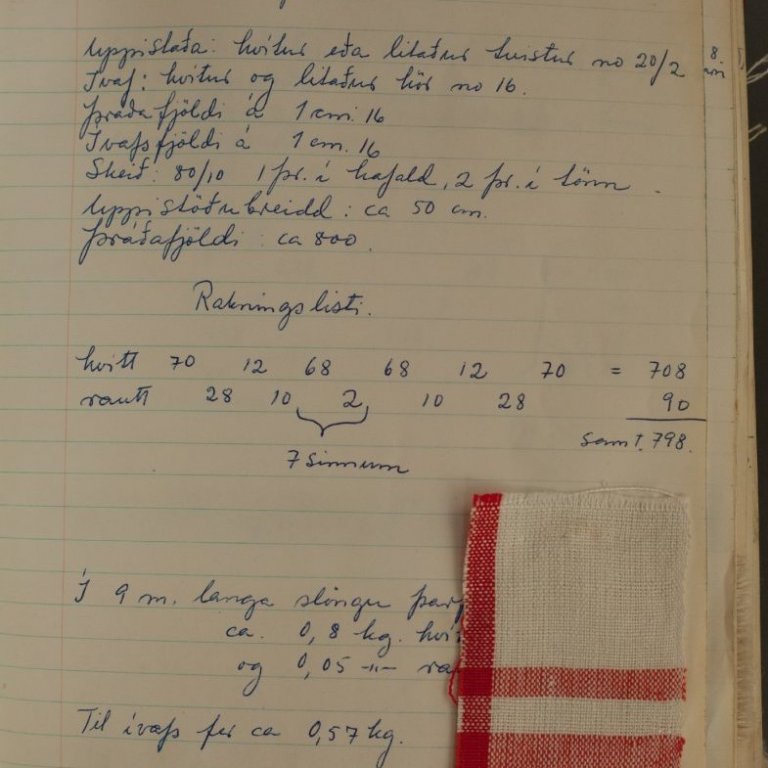 Uppistaða: hvítur eða litaður tvistur no 20/2
Ívaf: hvítur og litaður hör no 16.
Þráðafjöldi á 1 cm. 16
Ívafsfjöldi á 1 cm. 16
Skeið: 80/10 1 þr. í hafald, 2 þr. í tönn.
Uppistöðubreidd: ca 50 cm.
Þráðafjöldi: ca 800.
Rakningslisti.
hvítt 70 12 68 68 12 70 = 708
rautt 28 10 2 10 28 90
samt. 798.
7 sinnum
Í 9 m. langa slöngu þarf
ca. 0,8 kg. hví
og 0,05 -"- ra
Til ívafs fer ca 0,57 kg.